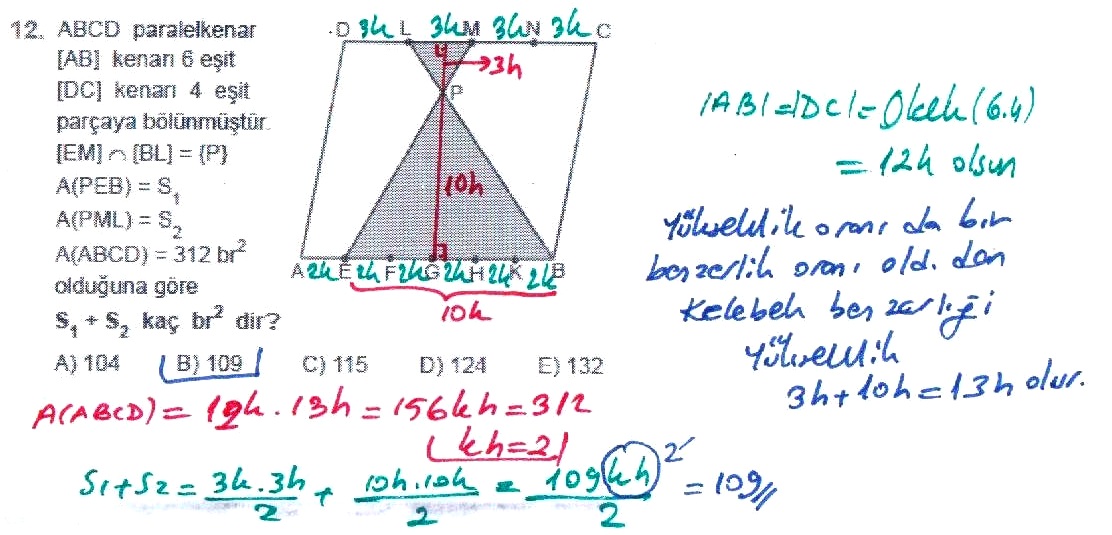 12. ABCD paralelkenar
[AB] kenarı 6 eşit
[DC] kenarı 4 eşit
parçaya bölünmüştür.
[EM] ∩ [BL] = {P}
A(PEB) = S₁
A(PML) = S₂
A(ABCD) = 312 br²
olduğuna göre
S₁ + S₂ kaç br² dir?
A) 104 B) 109 C) 115 D) 124 E) 132
D 3k L 3k M 3k N 3k C
3h
P
10h
A 2k E 2k F 2k G 2k H 2k K 2k B
10k
|AB|=|DC|=Okek(6.4)
= 12k olsun
Yükseklik oranı da bir
benzerlik oranı old. dan
Kelebek benzerliği
Yükseklik
3h+10h=13h olur.
A(ABCD) = 12k . 13h = 156kh = 312
kh=2
S₁+S₂ = 3k.3h/2 + 10h.10k/2 = 109kh/2 = 109//
2